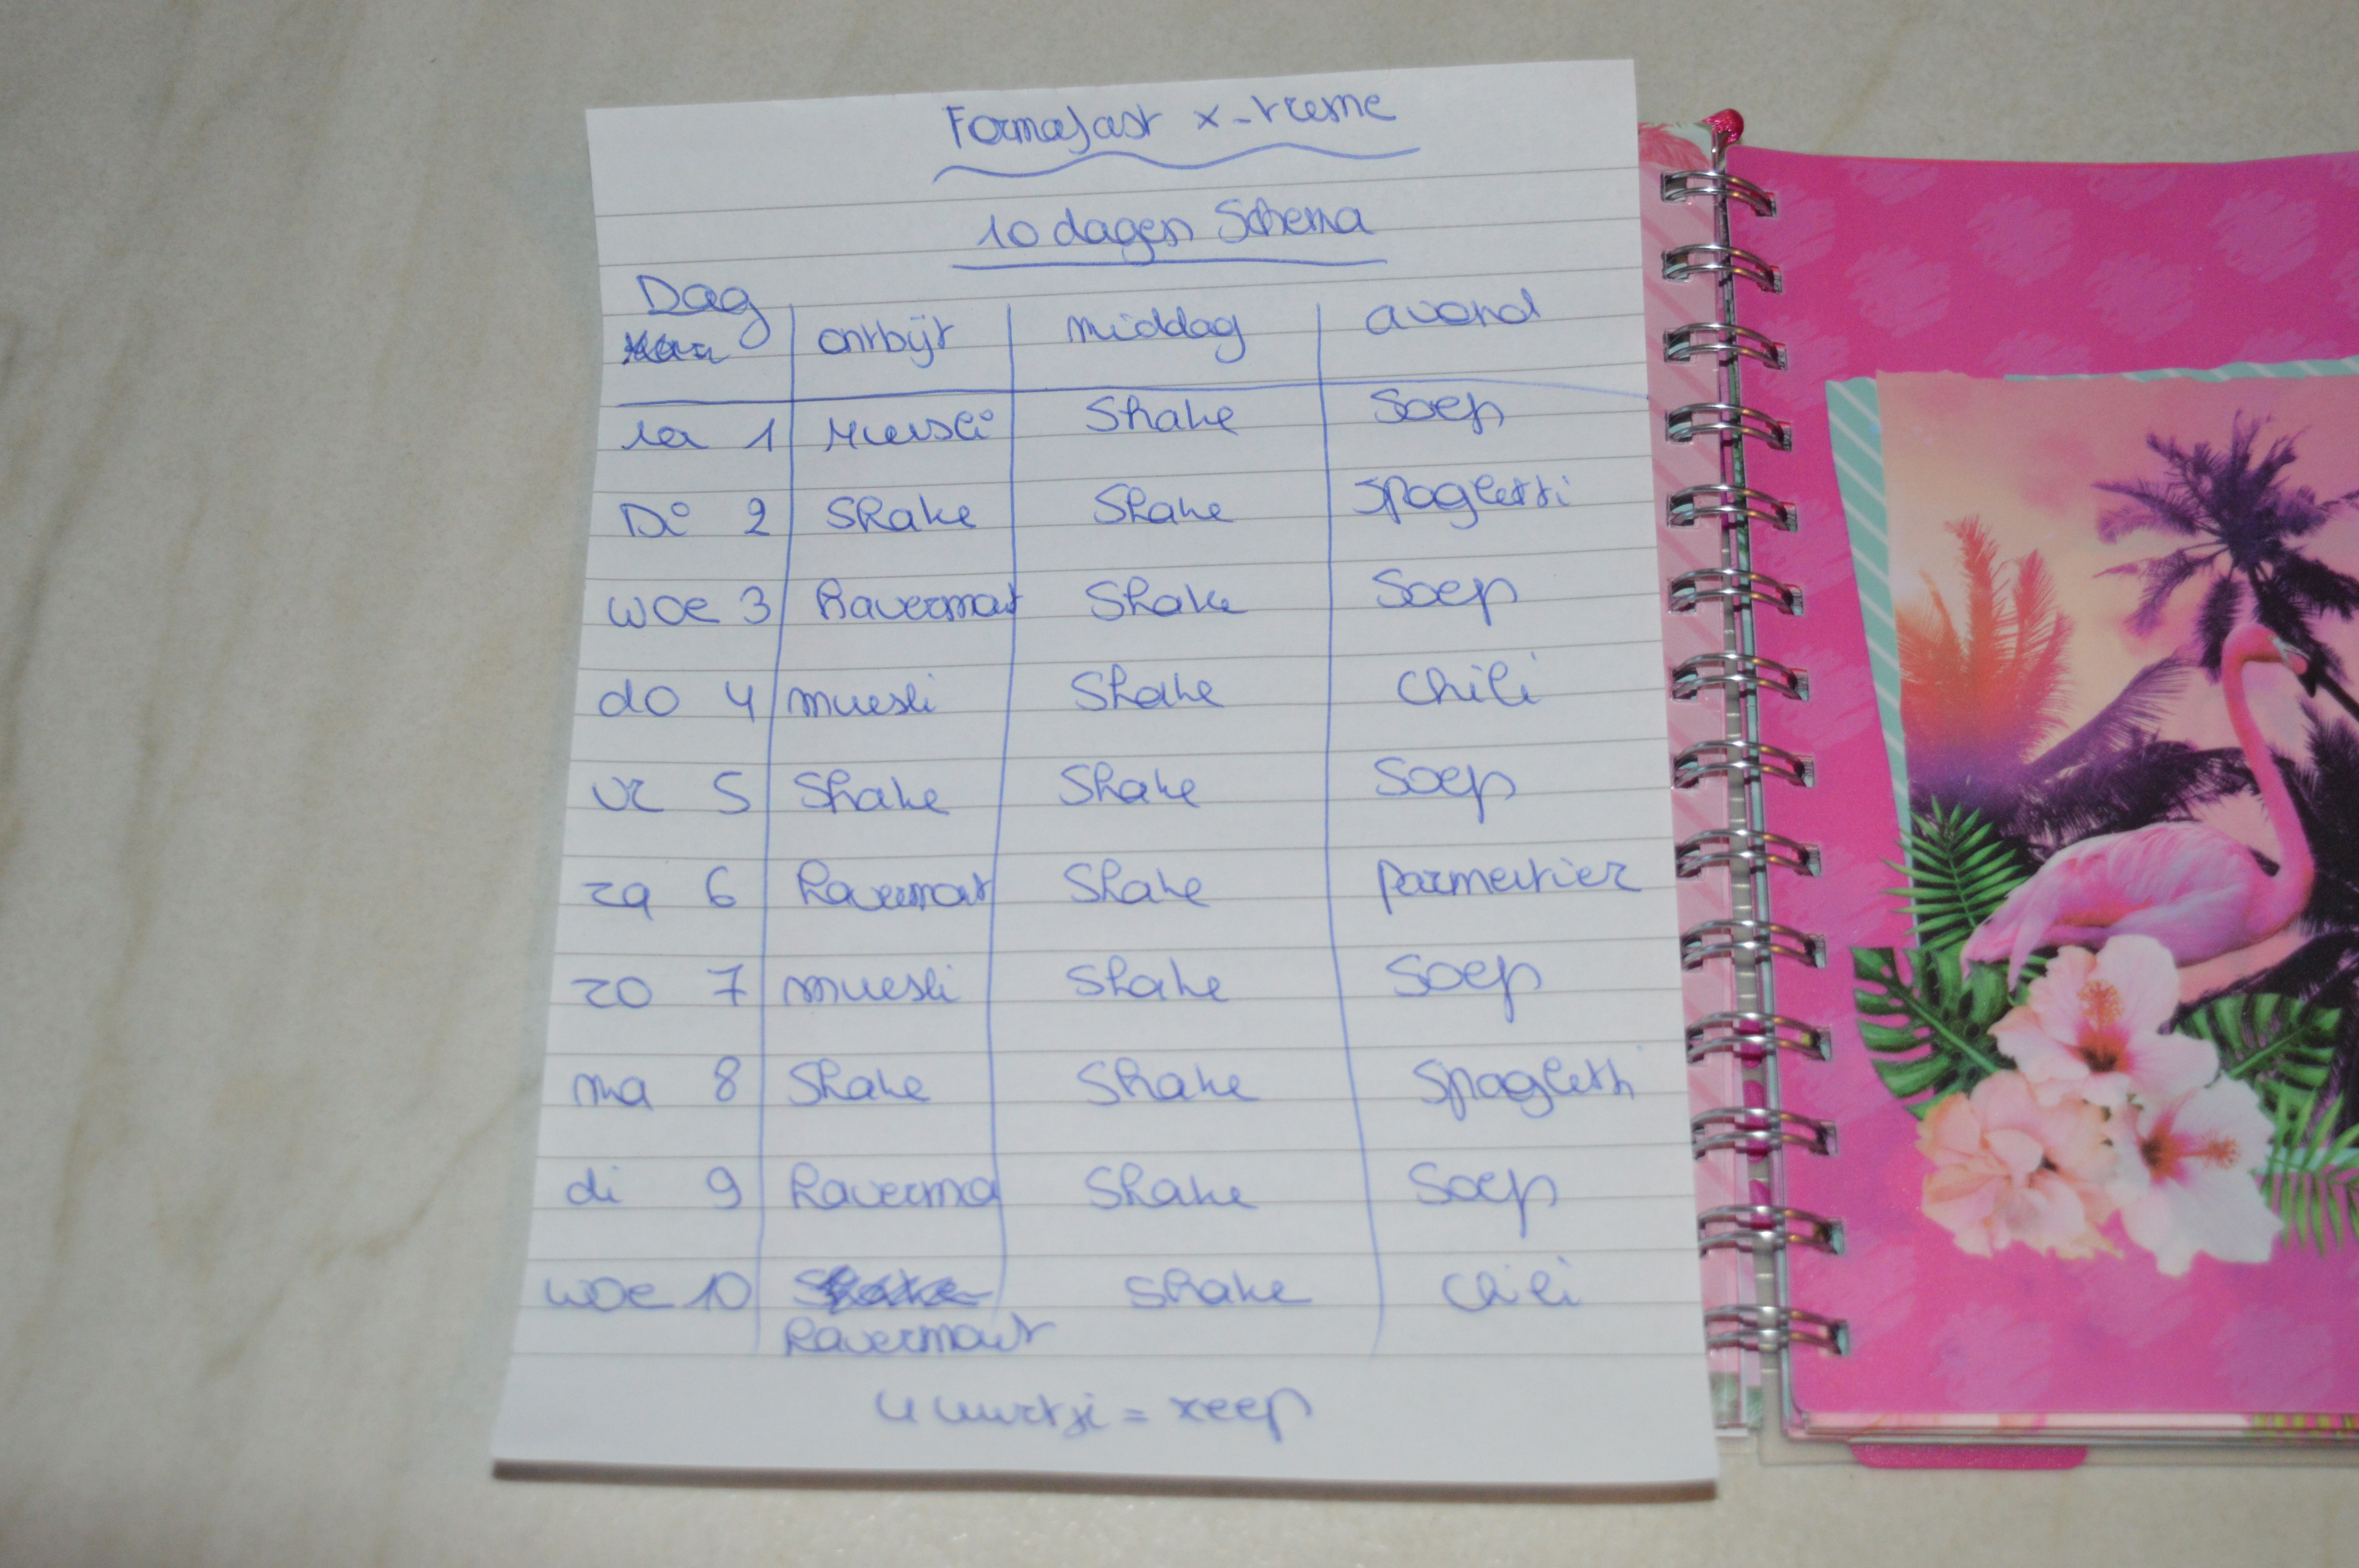 Formafast x-treme
10 dagen Schema
Dag
ontbijt middag avond
1 Muesli Shake Soep
Di 2 Shake Shake Spaghetti
woe 3 Havermout Shake Soep
do 4 muesli Shake Chili
vr 5 Shake Shake Soep
za 6 Havermout Shake parmentier
zo 7 muesli Shake Soep
ma 8 Shake Shake Spaghetti
di 9 Haverma Shake Soep
woe 10 Shake Chili
Havermout
= reep